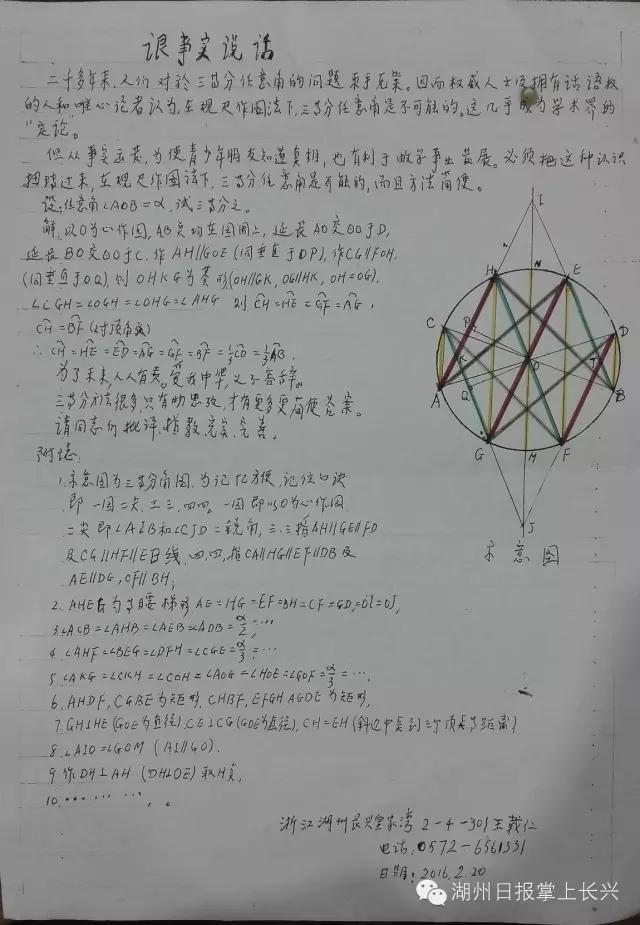 让事实说话
二千多年来,人们对於三等分任意角的问题束手无策。因而权威人士及拥有话语权
的人和唯心论者认为,在规尺作图法下,三等分任意角是不可能的。这几乎成为学术界的
"定论。
但从事实出发,为使青少年朋友知道真相,也有利于数学事业发展。必须把这种认识
扭转过来,在规尺作图法下,三等分任意角是可能的,而且方法简便。
设:任意角∠AOB=α,试三等分之。
解:以O为心作圆,AB点均在圆周上,延长AO交⊙O于D,
延长BO交⊙O于C.作AH∥GOE(同垂直于DP),作CG∥FOH,
(同垂直于OQ),则OHKG为菱形(OH∥GK,OG∥HK,OH=OG).
∠CGH=∠OGH=∠OHG=∠AHG 则CH=HE=GF=AG,
CH=BF(对顶角等)
∴CH=HE=ED=AG=GF=BF=1/3CD=1/3AB.
为了未来,人人有责。爱我中华,义不容辞。
三等分方法很多,只有勤思攻,才有更多更简便答案。
请同志们批评、指教、充实、完善。
附志:
1.示意图为三等分角图.为记忆方便,记住口诀
即一圆二尖、三三、四四。一圆即以O为心作圆.
二尖即∠AIB和∠CJD=锐角,三、三指AH∥GE∥FD
及CG∥HF∥EB线,四、四、指CA∥HG∥EF∥DB及
AE∥DG,CF∥BH;
2. AHEG为等腰梯形,AE=HG=EF=BH=CF=GD,=OI=OJ,
3.∠ACB=∠AHB=∠AEB=∠ADB=α/2,…
4.∠AHF=∠BEG=∠DFH=∠CGE=α/3=…
5.∠AKG=∠CKH=∠COH=∠AOG=∠HOE=∠GOF=α/3=…,
6. AHDF,CGBE为矩形.CHBF,EFGH AGDE为矩形,
7. GH⊥HE(GOE为直径),CE⊥CG(GOE为直径),CH=EH(斜边中点到三个顶点等距离)
8.∠AIO=∠GOM(AI∥GO).
9.作DH⊥AH(DH⊥OE)取H点,
10.… … …,。
I
H
N
E
C
P
D
K
O
T
A
Q
B
G
M
F
J
示意图
浙江湖州长兴皇家湾2-4-301王载仁
电话:0572-6561331
日期:2016.2.20
湖州日报掌上长兴